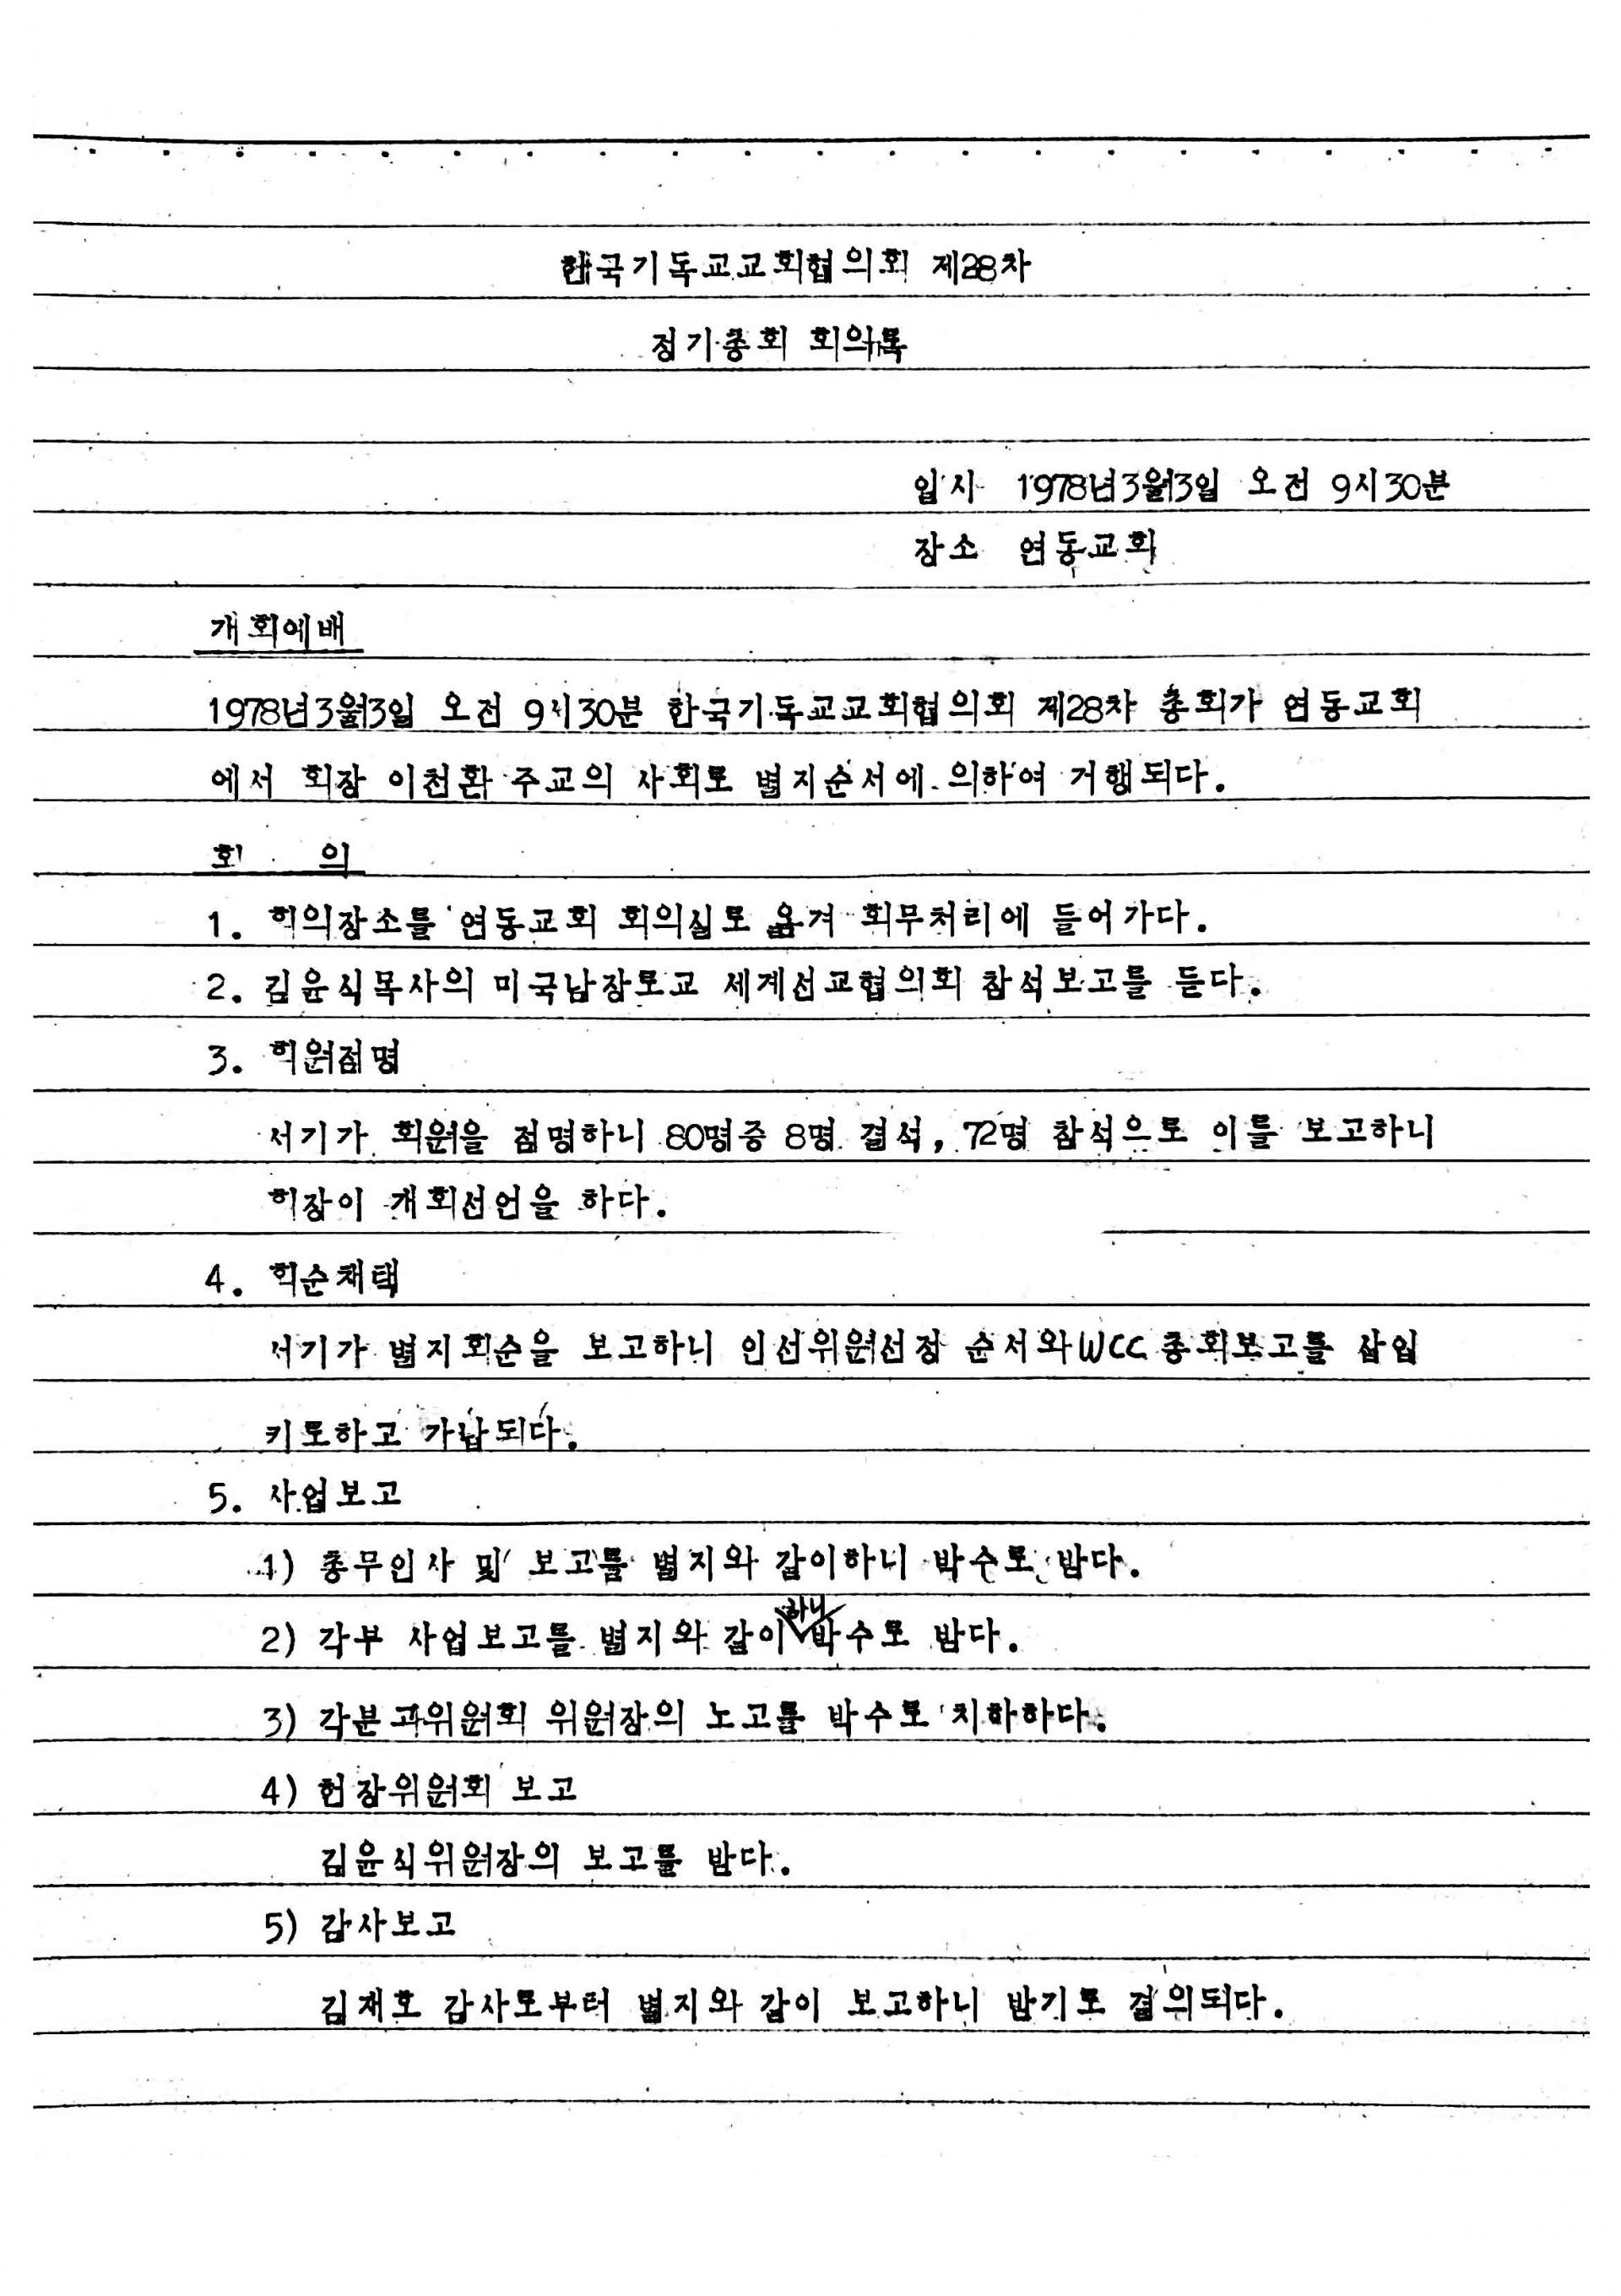 한국기독교교회협의회 제28차
정기총회 회의록
일시 1978년3월3일 오전 9시30분
장소 연동교회
개회예배
1978년3월3일 오전 9시30분 한국기독교교회협의회 제28차 총회가 연동교회
에서 회장 이천환 주교의 사회로 별지순서에 의하여 거행되다.
회 의
1. 회의장소를 연동교회 회의실로 옮겨 회무처리에 들어가다.
2. 김윤식목사의 미국남장로교 세계선교협의회 참석보고를 듣다.
3. 회원점명
서기가 회원을 점명하니 80명중 8명 결석, 72명 참석으로 이를 보고하니
회장이 개회선언을 하다.
4. 회순채택
서기가 별지회순을 보고하니 인선위원선정 순서와WCC 총회보고를 삽입
키로하고 가납되다.
5. 사업보고
1) 총무인사 및 보고를 별지와 같이하니 박수로 받다.
2) 각부 사업보고를 별지와 같이하니 박수로 받다.
3) 각분과위원회 위원장의 노고를 박수로 치하하다.
4) 헌장위원회 보고
김윤식위원장의 보고를 받다.
5) 감사보고
김재호 감사로부터 별지와 같이 보고하니 받기로 결의되다.